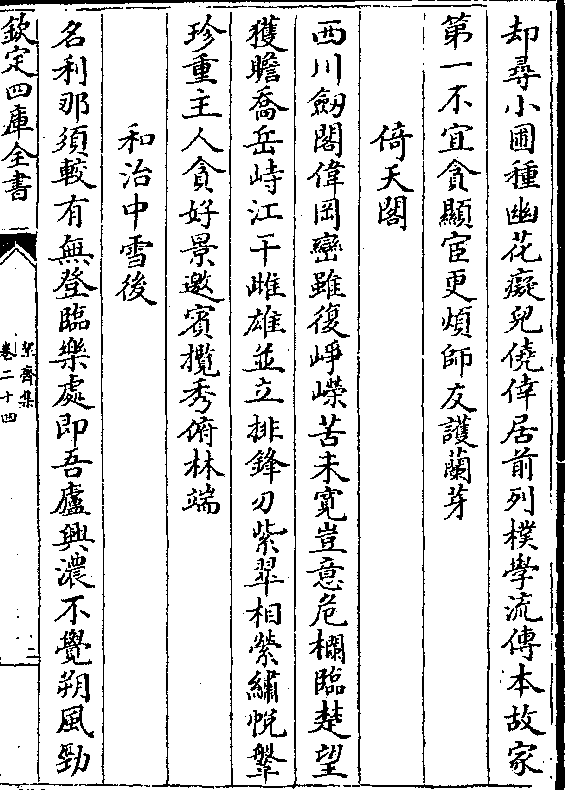 却尋小圃種幽花癡兒僥倖居前列樸學流傳本故家
第一不宜貪顯宦更煩師友護蘭芽
倚天閣
西川劔閣偉岡巒雖復崢嶸苦未寛豈意危欄臨楚望
獲瞻喬岳峙江干雌雄並立排鋒刃紫翠相縈繡帨鞶
珍重主人貪好景邀賓攬秀俯林端
和治中雪後
名利那須較有無登臨樂處即吾廬興濃不覺朔風勁
欽定四庫全書
絜齋集
卷二十四
二